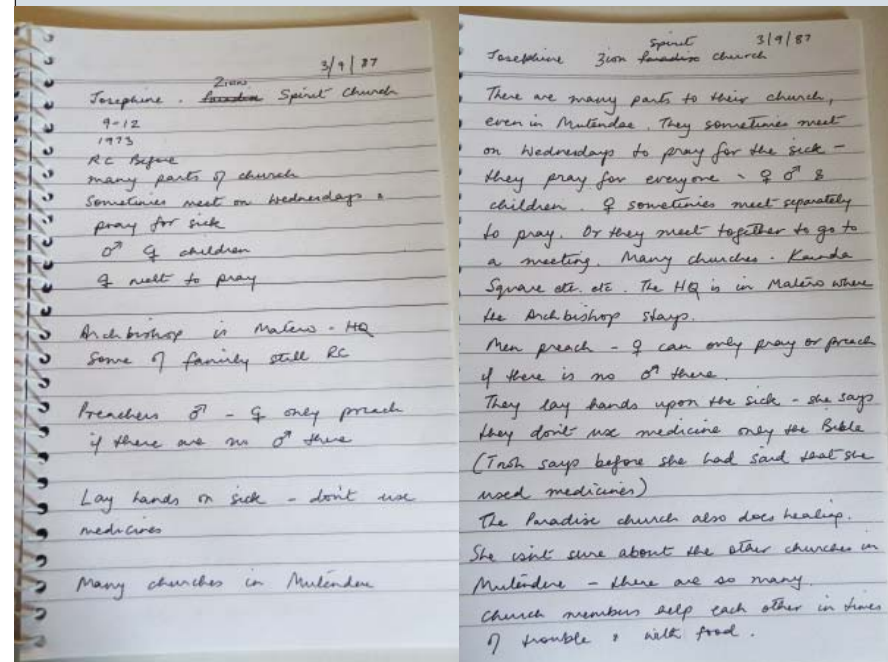 3/9/87
Zion
Josephine . Paradise Spirit Church
9-12
1973
RC Before
many parts of church
Sometimes meet on Wednesdays &
pray for sick
♂ ♀ children
♀ meet to pray
Archbishop is Matero - HQ
Some of family still RC
Preachers ♂ - ♀ only preach
if there are no ♂ there
Lay hands on sick - don't use
medicines
Many churches in Mutendere
Spirit 3/9/87
Josephine Zion Paradise Church
There are many parts to their church,
even in Mutendae. They sometimes meet
on Wednesdays to pray for the sick -
they pray for everyone - ♀ ♂ &
children. ♀ sometimes meet separately
to pray. Or they meet together to go to
a meeting. Many churches. Kaunda
Square etc. etc. The HQ is in Matero where
the Archbishop stays.
Men preach - ♀ can only pray or preach
if there is no ♂ there.
They lay hands upon the sick - she says
they don't use medicine only the Bible
( says before she had said that she
used medicines)
The Paradise church also does healing.
She isn't sure about the other churches in
Mutendere - there are so many.
Church members help each other in times
of trouble & with food.